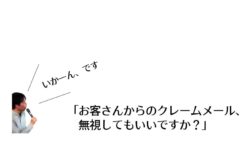 いかーん、です
「お客さんからのクレームメール、
無視してもいいですか？」